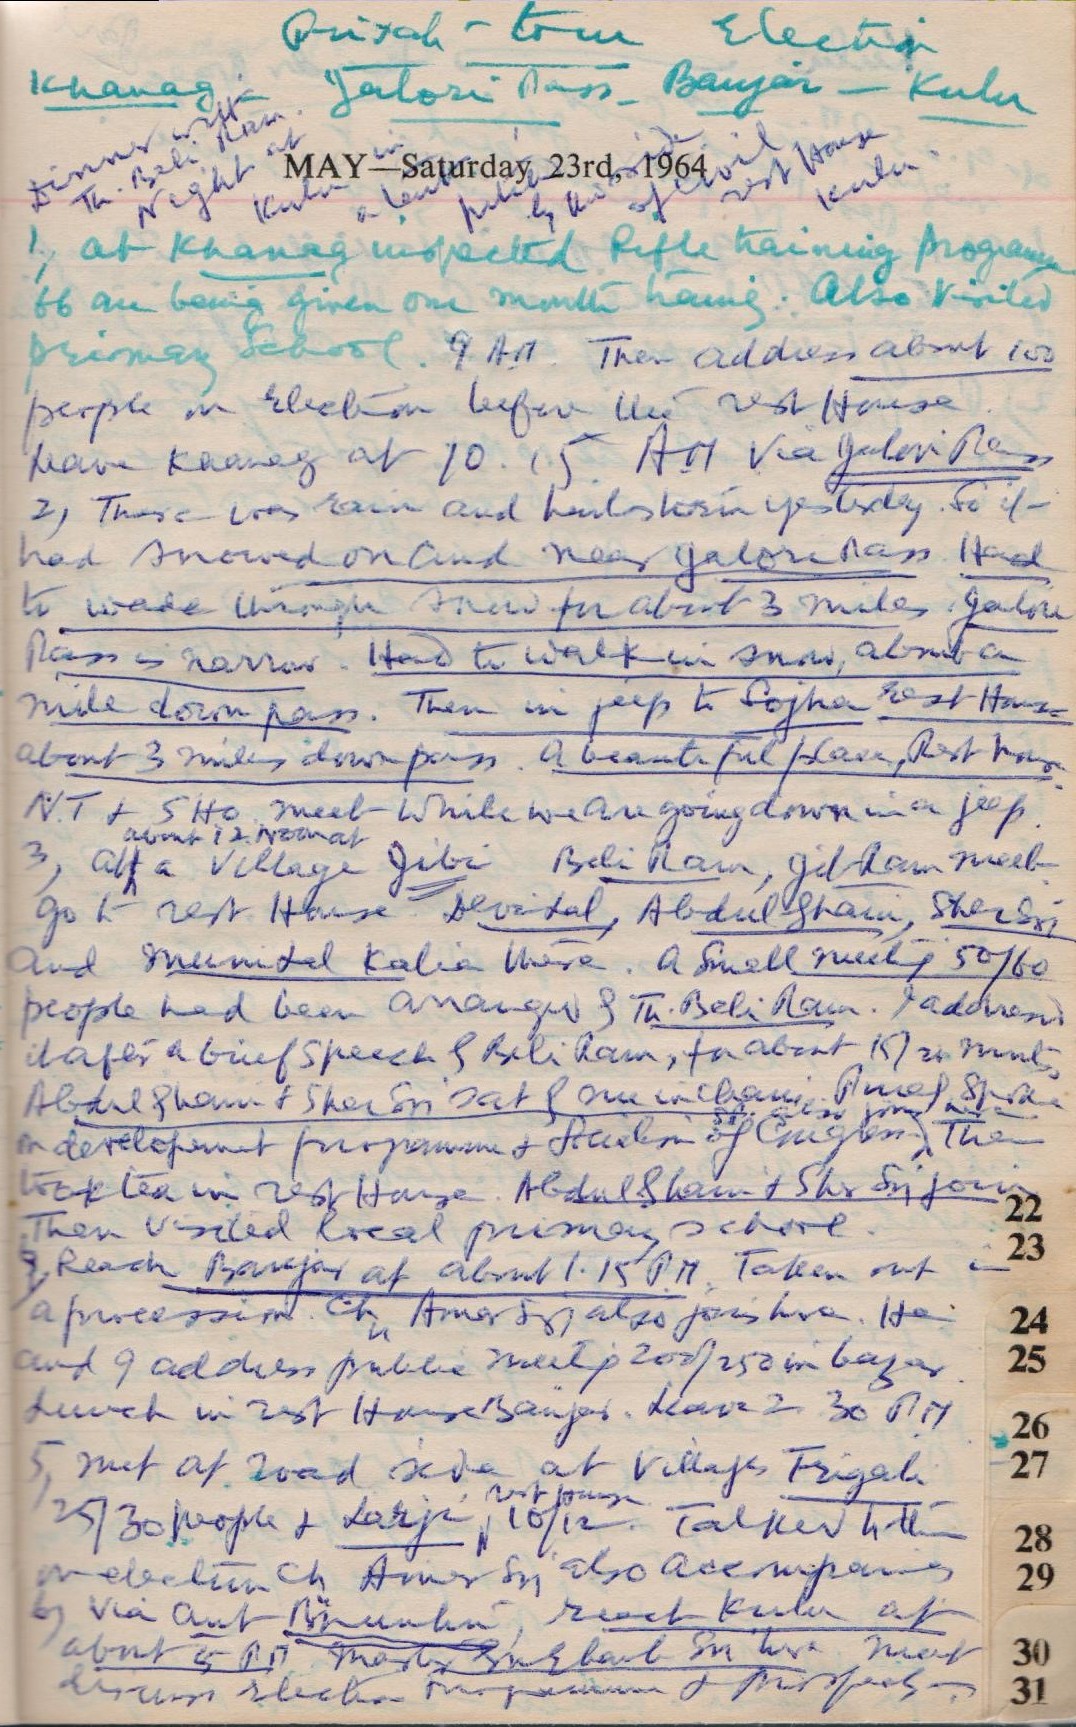 tour Election
Khanag - Jalori Pass - Banjar - Kulu
Dinner with Th. Beli Ram. Night at Kulu in a tent by the side of Civil rest House Kulu.
MAY—Saturday, 23rd, 1964
1, at Khanag inspected Rifle training programme
66 are being given one month training. Also visited
primary School. 9 AM. Then address about 100
people on Election before the rest House.
Leave Kaanag at 10.15 AM via Jalori Pass
2, There was rain and hailstorm yesterday. So it
had snowed on and near Jalori Pass. Had
to wade through snow for about 3 miles. Jalori
Pass is narrow. Had to walk in snow, about a
mile down pass. Then in jeep to Sojha rest House
about 3 miles down pass. A beautiful place, Rest House.
N.T + SHO meet while we are going down in a jeep.
about 12 Noon at
3, a Village Jibi Beli Ram, Ram meet
go to rest House Devi Lal, Abdul Ghani, Sher Sg
and Muni Lal Kalia there. A small meeting 50/60
people had been arranged by Th. Beli Ram. I address
it after a brief speech by Beli Ram, for about 15/20 minutes
Abdul Ghani + Sher Sg sat by me in chairs. spoke
on development programme + Socialism of Congress. Then
took tea in rest House. Abdul Ghani + Sher Sg join
Then visited local primary school.
4, Reach Banjar at about 1.15 PM. Taken out in
a procession. Ch. Amar Sg also joins here. He
and I address public meeting 200/250 in bazar.
Lunch in rest House Banjar. Leave 2.30 PM
5, met at road side at village
rest house
25/30 people + Larji, 10/12. Talked to them
on election Ch Amar Sg also accompanies
6, via Aut reach Kulu at
about 5 PM Master here meet
discuss election programme + prospects
22
23
24
25
26
27
28
29
30
31